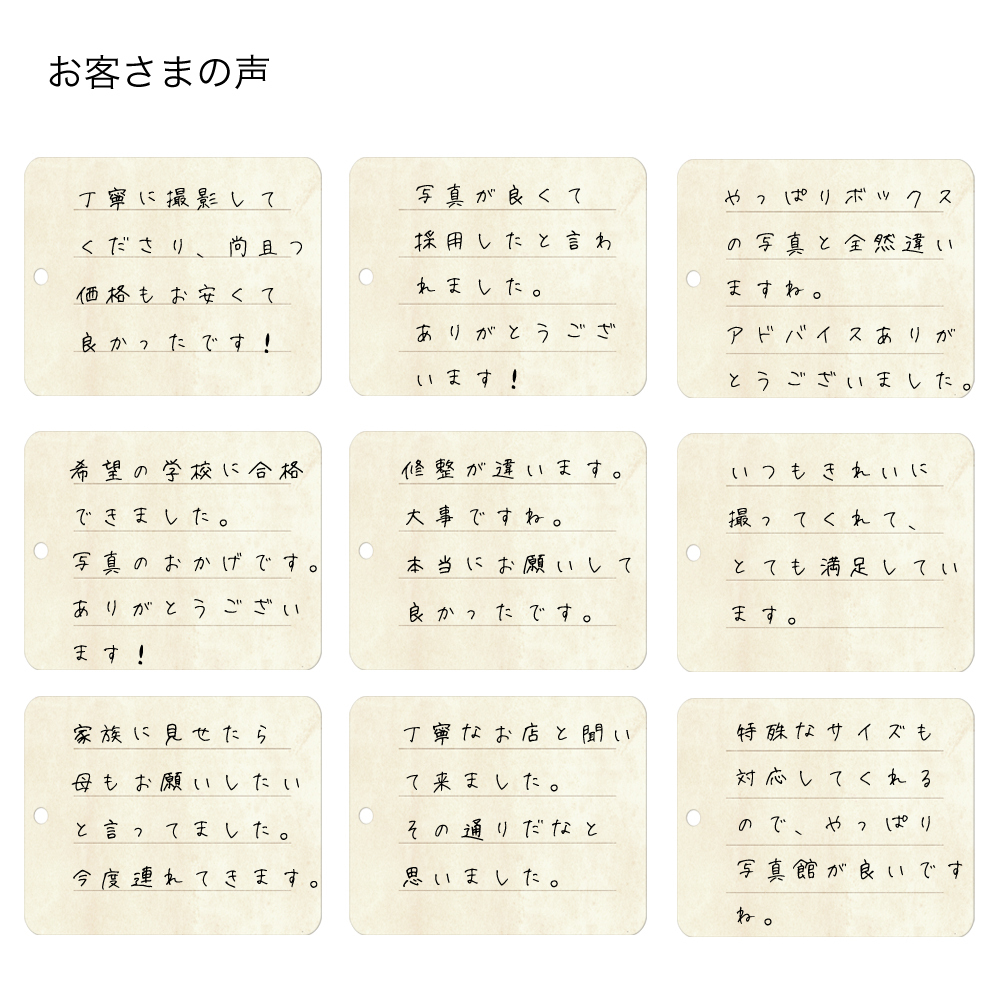 お客さまの声
丁寧に撮影して
くださり、尚且つ
価格もお安くて
良かったです!
写真が良くて
採用したと言わ
れました。
ありがとうござ
います!
やっぱりボックス
の写真と全然違い
ますね。
アドバイスありが
とうございました。
希望の学校に合格
できました。
写真のおかげです。
ありがとうござい
ます!
修整が違います。
大事ですね。
本当にお願いして
良かったです。
いつもきれいに
撮ってくれて、
とても満足してい
ます。
家族に見せたら
母もお願いしたい
と言ってました。
今度連れてきます。
丁寧なお店と聞い
て来ました。
その通りだなと
思いました。
特殊なサイズも
対応してくれる
ので、やっぱり
写真館が良いです
ね。